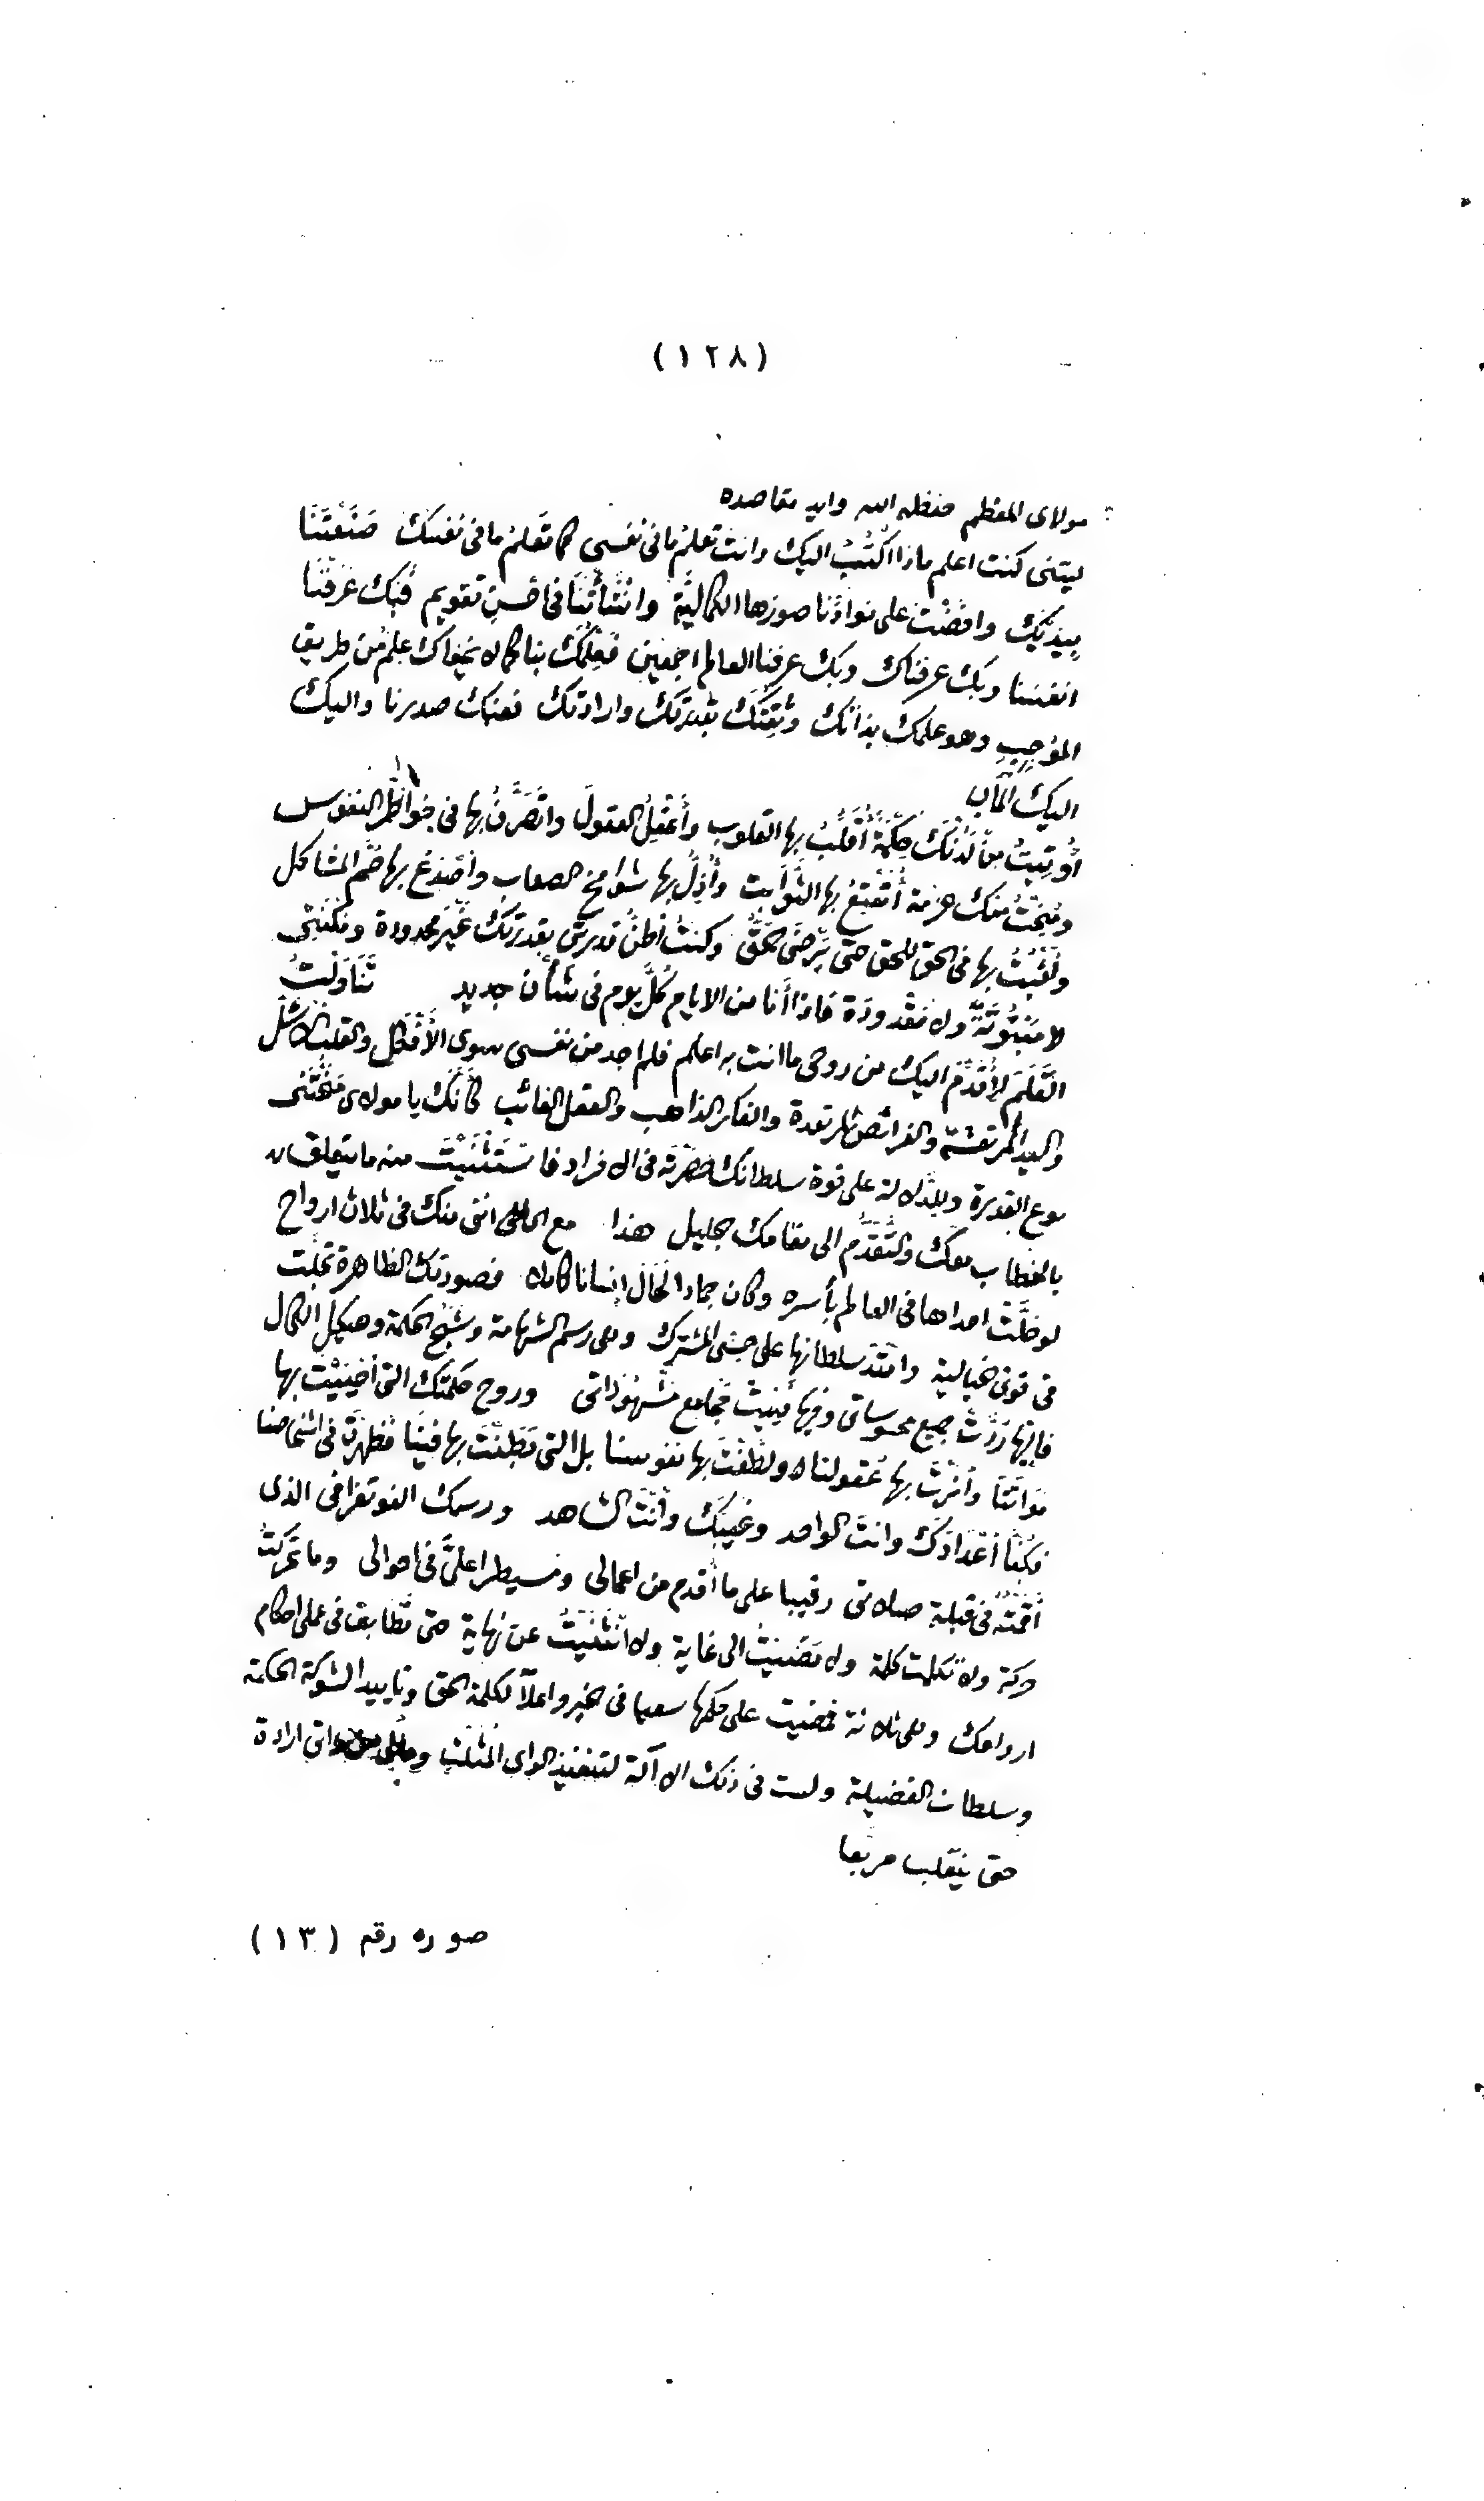 (١٢٨)
مولاى المعظم حفظه الله وايد مقاصده
ليتنى كنت اعلم ماذا اكتُبُ اليك وانت تعلمُ ما فى نفسى كما تَعلمُ ما فى نفسك صَنَعْتَنَا
بيديك وافضْت على موادّنا صورَها الكماليّة وانشأتَنا فى احسنِ تقويم فبك عَرَفْنَا
انفسنا وبك عرفناك وبك عرفنا العالم اجمعين فعِلمُك بنا كما لا يخفاك عِلمٌ من طريق
الموجِبِ وهو علمك بذاتك وثِقَتُك بقدرتك وارادتك فعنك صدرنا واليك
اليك المآب
أُوتيتُ من لَدُنْكَ حِكمةً أُقلِّبُ بها القلوب وأَعْقِلُ العقولَ واتَصَرَّفُ بها فى خواطر النفوس
ومُنِحْتُ منك عزمة أُتَعْتِعُ بها الثوابت وأُذِلُّ بها شوامخ الصعاب وأَصْدَعُ بها صُمّ المشاكل
وأَثْبُتُ بها فى الحق للحق حتى يَرضَى الحقُّ وكنتُ اظنّ قدرتى بقدرتك غَيرَ محدودة ومُكْنَتِى
لا مَبْتُوتَةً ولا مَقْدودَة فاذا أنا من الايام كُلَّ يوم فى شأن جديد تَنَاوَلْتُ
القَلَمَ لأُقدِّمَ اليك من روحى ما انت به اعلم فلم اجد من نفسى سوى الأَفْكَلِ والقلب الاشَلّ
واليد المرتعشة والفرائص المرتعدة والفكر الذاهب والعقل الغائب كأنّك يا مولاى مَنَحْتَنى
نوع القدرة وللدلالة على قوة سلطانك حصرته فى الافراد فاسْتَثْنَيْتَ منه ما يتعلق
بالخطاب معك والتَّقَدُّم الى مقامك الجليل هذا مع اننى منك فى ثلاث ارواح
لو حَلَّتْ احداها فى العالم بأسره وكان جمادا لَحَالَ إنسانا كاملا فصورتك الظاهرة تجلّت
فى قوتى الخيالية وامتدّ سلطانها على حسى المشترك وهى رسم الشهامة وشَبَحُ الحكمة وهيكل الكمال
فاليها رُدَّتْ جميع محسوساتى وفيها فَنِيَتْ مجامع مشهوداتى وروح حكمتك التى أَحْيَيْتَ بها
مَواتَنَا وأَنَرْتَ بها عُقولنا ولطَّفْتَ بها نفوسنا بل التى بَطَنْتَ بها فينا فظهرتَ فى اشخاصنا
فكُنَّا أَعْدَادَك وانت الواحد وغَيبَك وأَنْتَ الشاهد ورسمك الفوتغرافى الذى
أَقَمْتُه فى قبلة صلاتى رقيبا على ما أُقدم من اعمالى ومسيطرا علىَّ فى احوالى وما تحركتُ
حركة ولا تكلمت كلمة ولا مَضَيْتُ الى غاية ولا انْثَنَيْتُ عن نهاية حتى تطابق فى عملى احكام
ارواحك وهى ثلاثة فمضيت على حكمها سعيا فى الخير واعلآ لكلمة الحق وتاييدا لشوكة الحكمة
وسلطان الفضيلة ولست فى ذلك الا آلة لتنفيذ الراى المثلث ومالى من ذاتى ارادة
حتى ينقلب مربعا
صوره رقم (١٣)